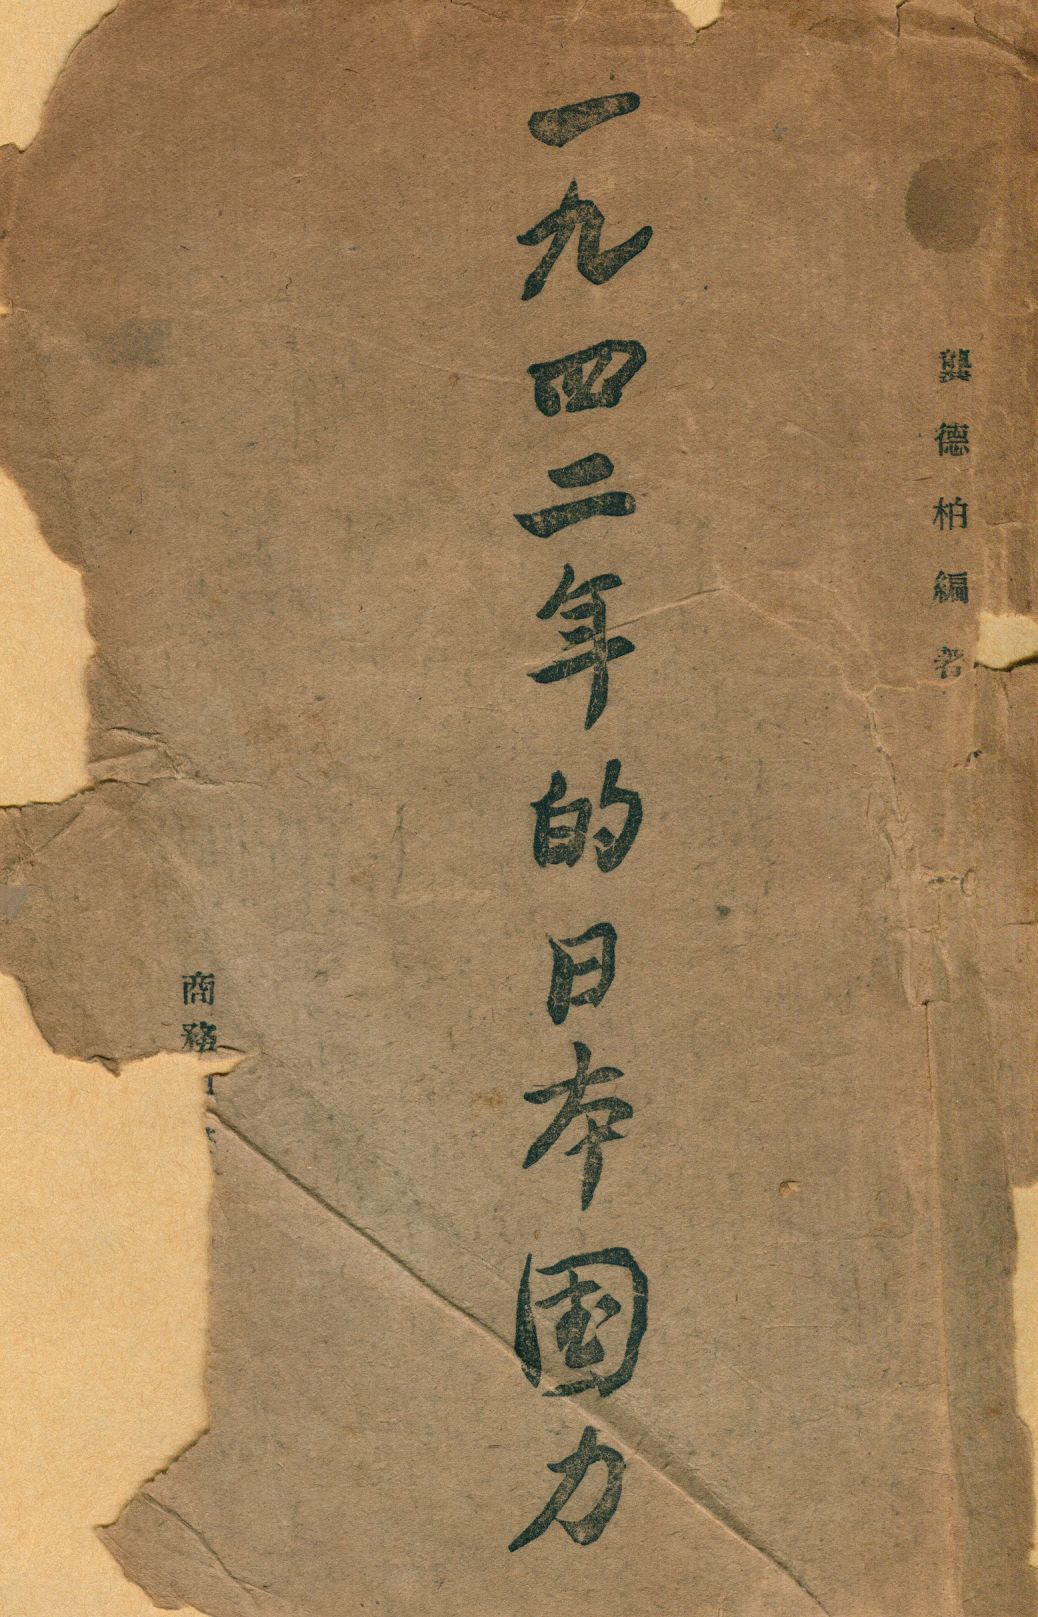 龔德柏編著
一九四二年的日本国力
商務